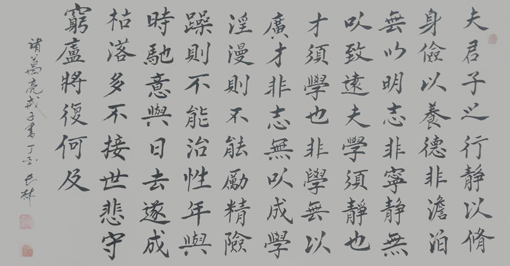 夫君子之行靜以脩
身儉以養德非澹泊
無以明志非寧靜無
以致遠夫學須靜也
才須學也非學無以
廣才非志無以成學
淫漫則不能勵精險
躁則不能治性年與
時馳意與日去遂成
枯落多不接世悲守
窮廬將復何及
諸葛亮戒子書丁